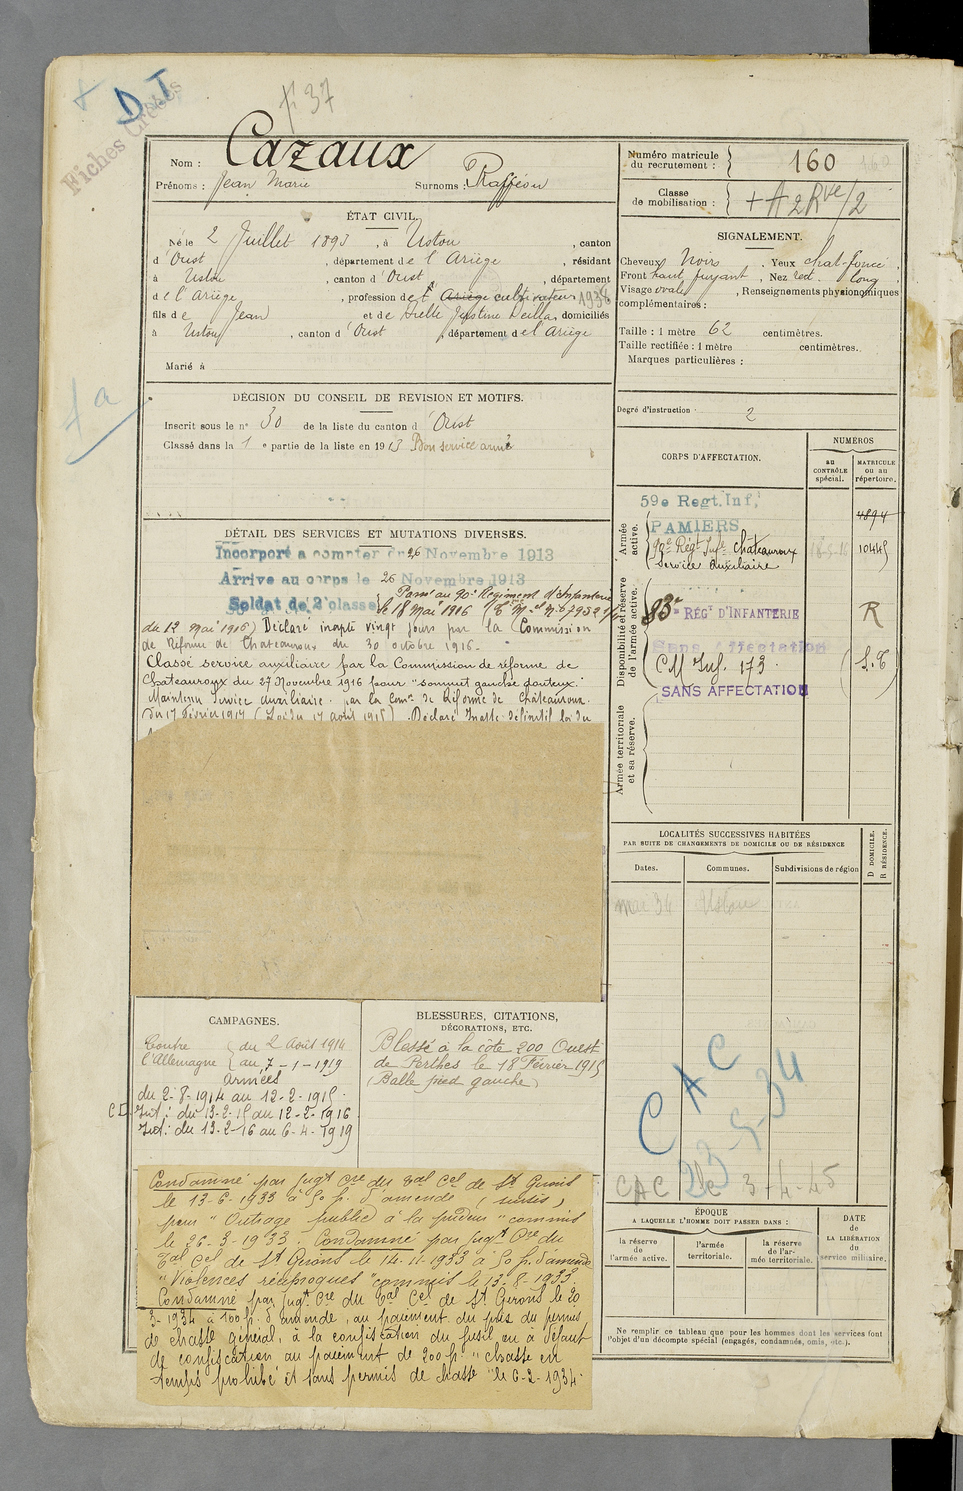 Fiches Croisés
D T
f° 37
Nom : Cazaux
Prénoms : Jean Marie Surnoms : Rafféou
Numéro matricule du recrutement : 160
Classe de mobilisation : + A 2 Rve/2
ÉTAT CIVIL.
Né le 2 Juillet 1893, à Ustou, canton
d'Oust, département de l'Ariège, résidant
à Ustou, canton d'Oust, département
de l'Ariège, profession de cultivateur 1938
fils de Jean et de Justine domiciliés
à Ustou, canton d'Oust, département de l'Ariège
Marié à
SIGNALEMENT.
Cheveux Noirs. Yeux chat-foncé
Front haut fuyant, Nez rect. long
Visage ovale, Renseignements physionomiques
complémentaires :
Taille : 1 mètre 62 centimètres.
Taille rectifiée : 1 mètre centimètres.
Marques particulières :
Degré d'instruction 2
DÉCISION DU CONSEIL DE REVISION ET MOTIFS.
Inscrit sous le n° 30 de la liste du canton d'Oust
Classé dans la 1e partie de la liste en 1913 Bon service armé
CORPS D'AFFECTATION.
NUMÉROS
au CONTRÔLE spécial.
MATRICULE ou au répertoire.
Armée active.
59e Regt. Inf.
PAMIERS
4894
90e Régt Infie Châteauroux 10445
Service Auxiliaire
Disponibilité et réserve de l'armée active.
83e RÉGt D'INFANTERIE R
Sans Affectation
CM Inf. 173
SANS AFFECTATION
Armée territoriale et sa réserve.
DÉTAIL DES SERVICES ET MUTATIONS DIVERSES.
Incorporé a compter du 26 Novembre 1913
Arrivé au corps le 26 Novembre 1913
Soldat de 2e classe
Passé au 90e Régiment d'Infanterie
le 18 Mai 1916
du 12 Mai 1916) Déclaré inapte vingt jours par la Commission
de Réforme de Chateauroux du 30 octobre 1916.
Classé service auxiliaire par la Commission de réforme de
Chateauroux du 27 Novembre 1916 pour "sommet gauche douteux."
Maintenu service auxiliaire par la Comon de Réforme de Châteauroux
du 17 Février 1917 (Loi du 17 août 1915). Déclaré Inapte définitif loi du
LOCALITÉS SUCCESSIVES HABITÉES
PAR SUITE DE CHANGEMENTS DE DOMICILE OU DE RÉSIDENCE
Dates.
Communes.
Subdivisions de région
D DOMICILE.
R RÉSIDENCE.
mai 34 Ustou
CAC
23-5-34
CAC 3-4-45
CAMPAGNES.
Contre l'Allemagne du 2 Août 1914
au 7-1-1919
Armées
du 2-8-1914 au 12-2-1915
Int: du 13-2-15 au 12-2-1916
Int: du 13-2-16 au 6-4-1919
BLESSURES, CITATIONS,
DÉCORATIONS, ETC.
Blessé à la côte 200 Ouest
de Perthes le 18 Février 1915
(Balle pied gauche)
Condamné par Jugt Cre du Tal Cel de St Girons
le 13-6-1933 à 50 f. d'amende (sursis)
pour "Outrage public à la pudeur" commis
le 26-3-1933. Condamné par Jugt Cre du
Tal Cel de St Girons le 14-11-1933 à 50 f. d'amende
"Violences réciproques" commis le 13-8-1933.
Condamné par Jugt Cre du Tal Cel de St Girons le 20
3-1934 à 100 f. d'amende, au paiement du prix du permis
de chasse général, à la confiscation du fusil ou à défaut
de confiscation au paiement de 200 f. "chasse en
temps prohibé et sans permis de chasse" le 6-2-1934.
ÉPOQUE
A LAQUELLE L'HOMME DOIT PASSER DANS :
la réserve de l'armée active.
l'armée territoriale.
la réserve de l'armée territoriale.
DATE de LA LIBÉRATION du service militaire.
Ne remplir ce tableau que pour les hommes dont les services font
l'objet d'un décompte spécial (engagés, condamnés, omis, etc.).